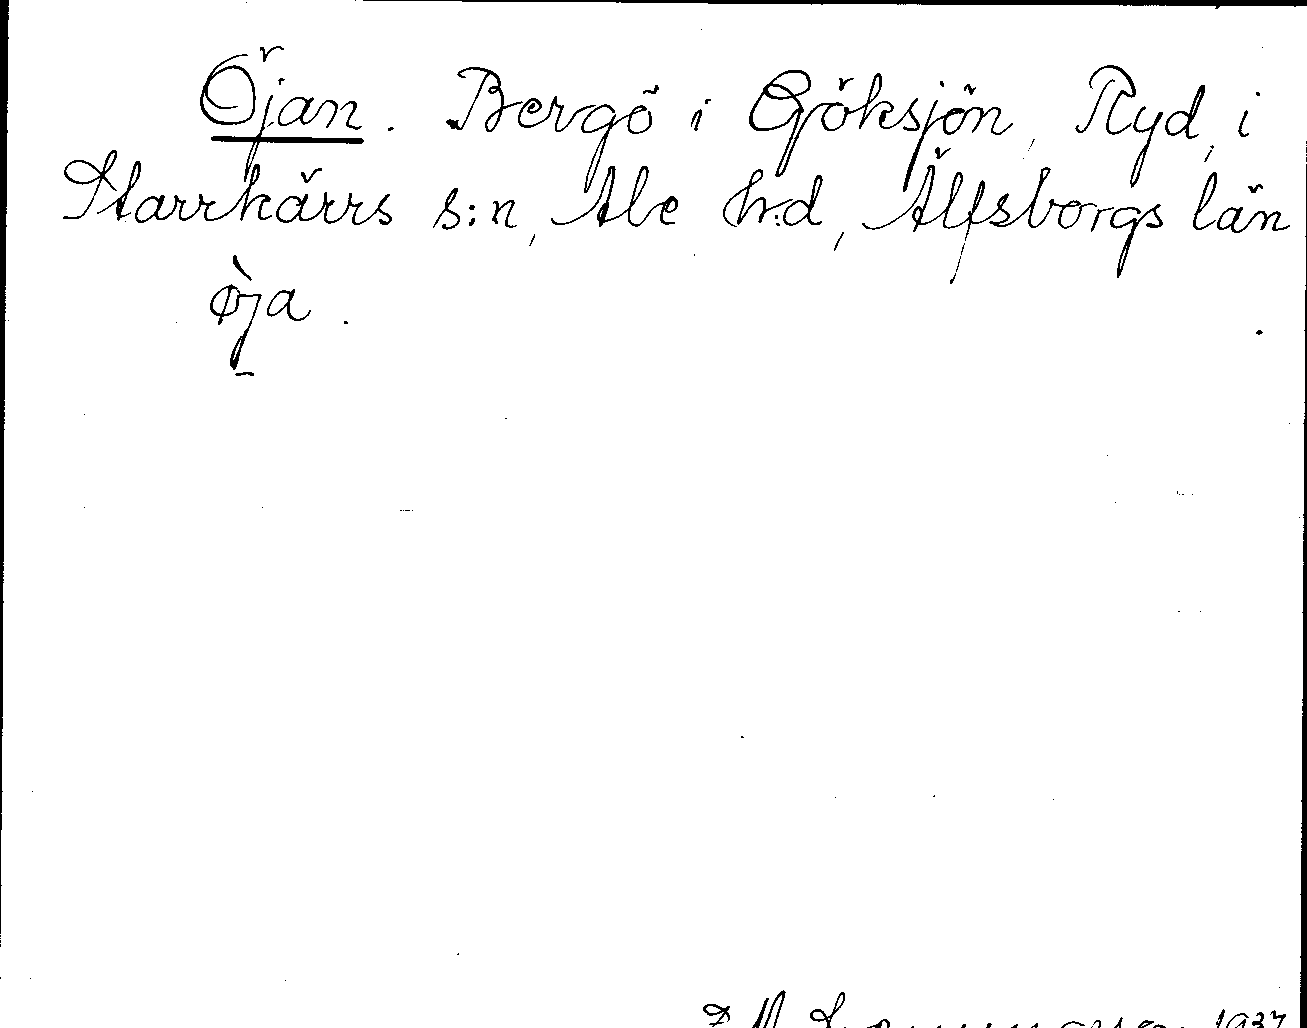 Öjan. Bergö i Göksjön, Ryd, i
Starrkärrs s:n, Ale hd, Älfsborgs län
øja.
1937